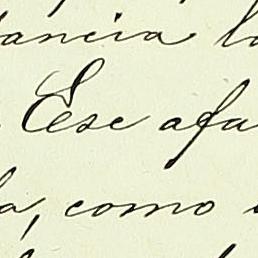 tancia lo
Ese afa
a, como